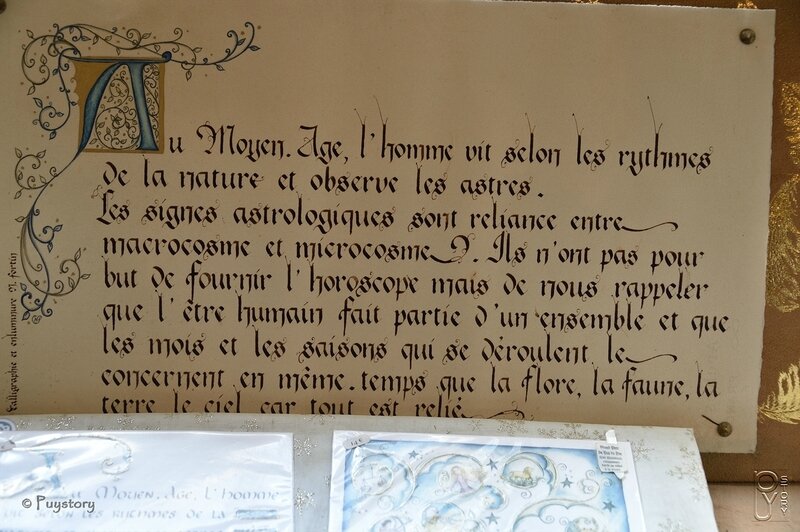 Au Moyen-Age, l'homme vit selon les rythmes
de la nature et observe les astres.
Les signes astrologiques sont reliance entre
macrocosme et microcosme. Ils n'ont pas pour
but de fournir l'horoscope mais de nous rappeler
que l'être humain fait partie d'un ensemble et que
les mois et les saisons qui se déroulent le
concernent en même-temps que la flore, la faune, la
terre le ciel car tout est relié
Calligraphie et enluminure M. Fortin
Moyen-Age, l'homme
vit selon les rythmes de la
14€
© Puystory
PUYSTORY